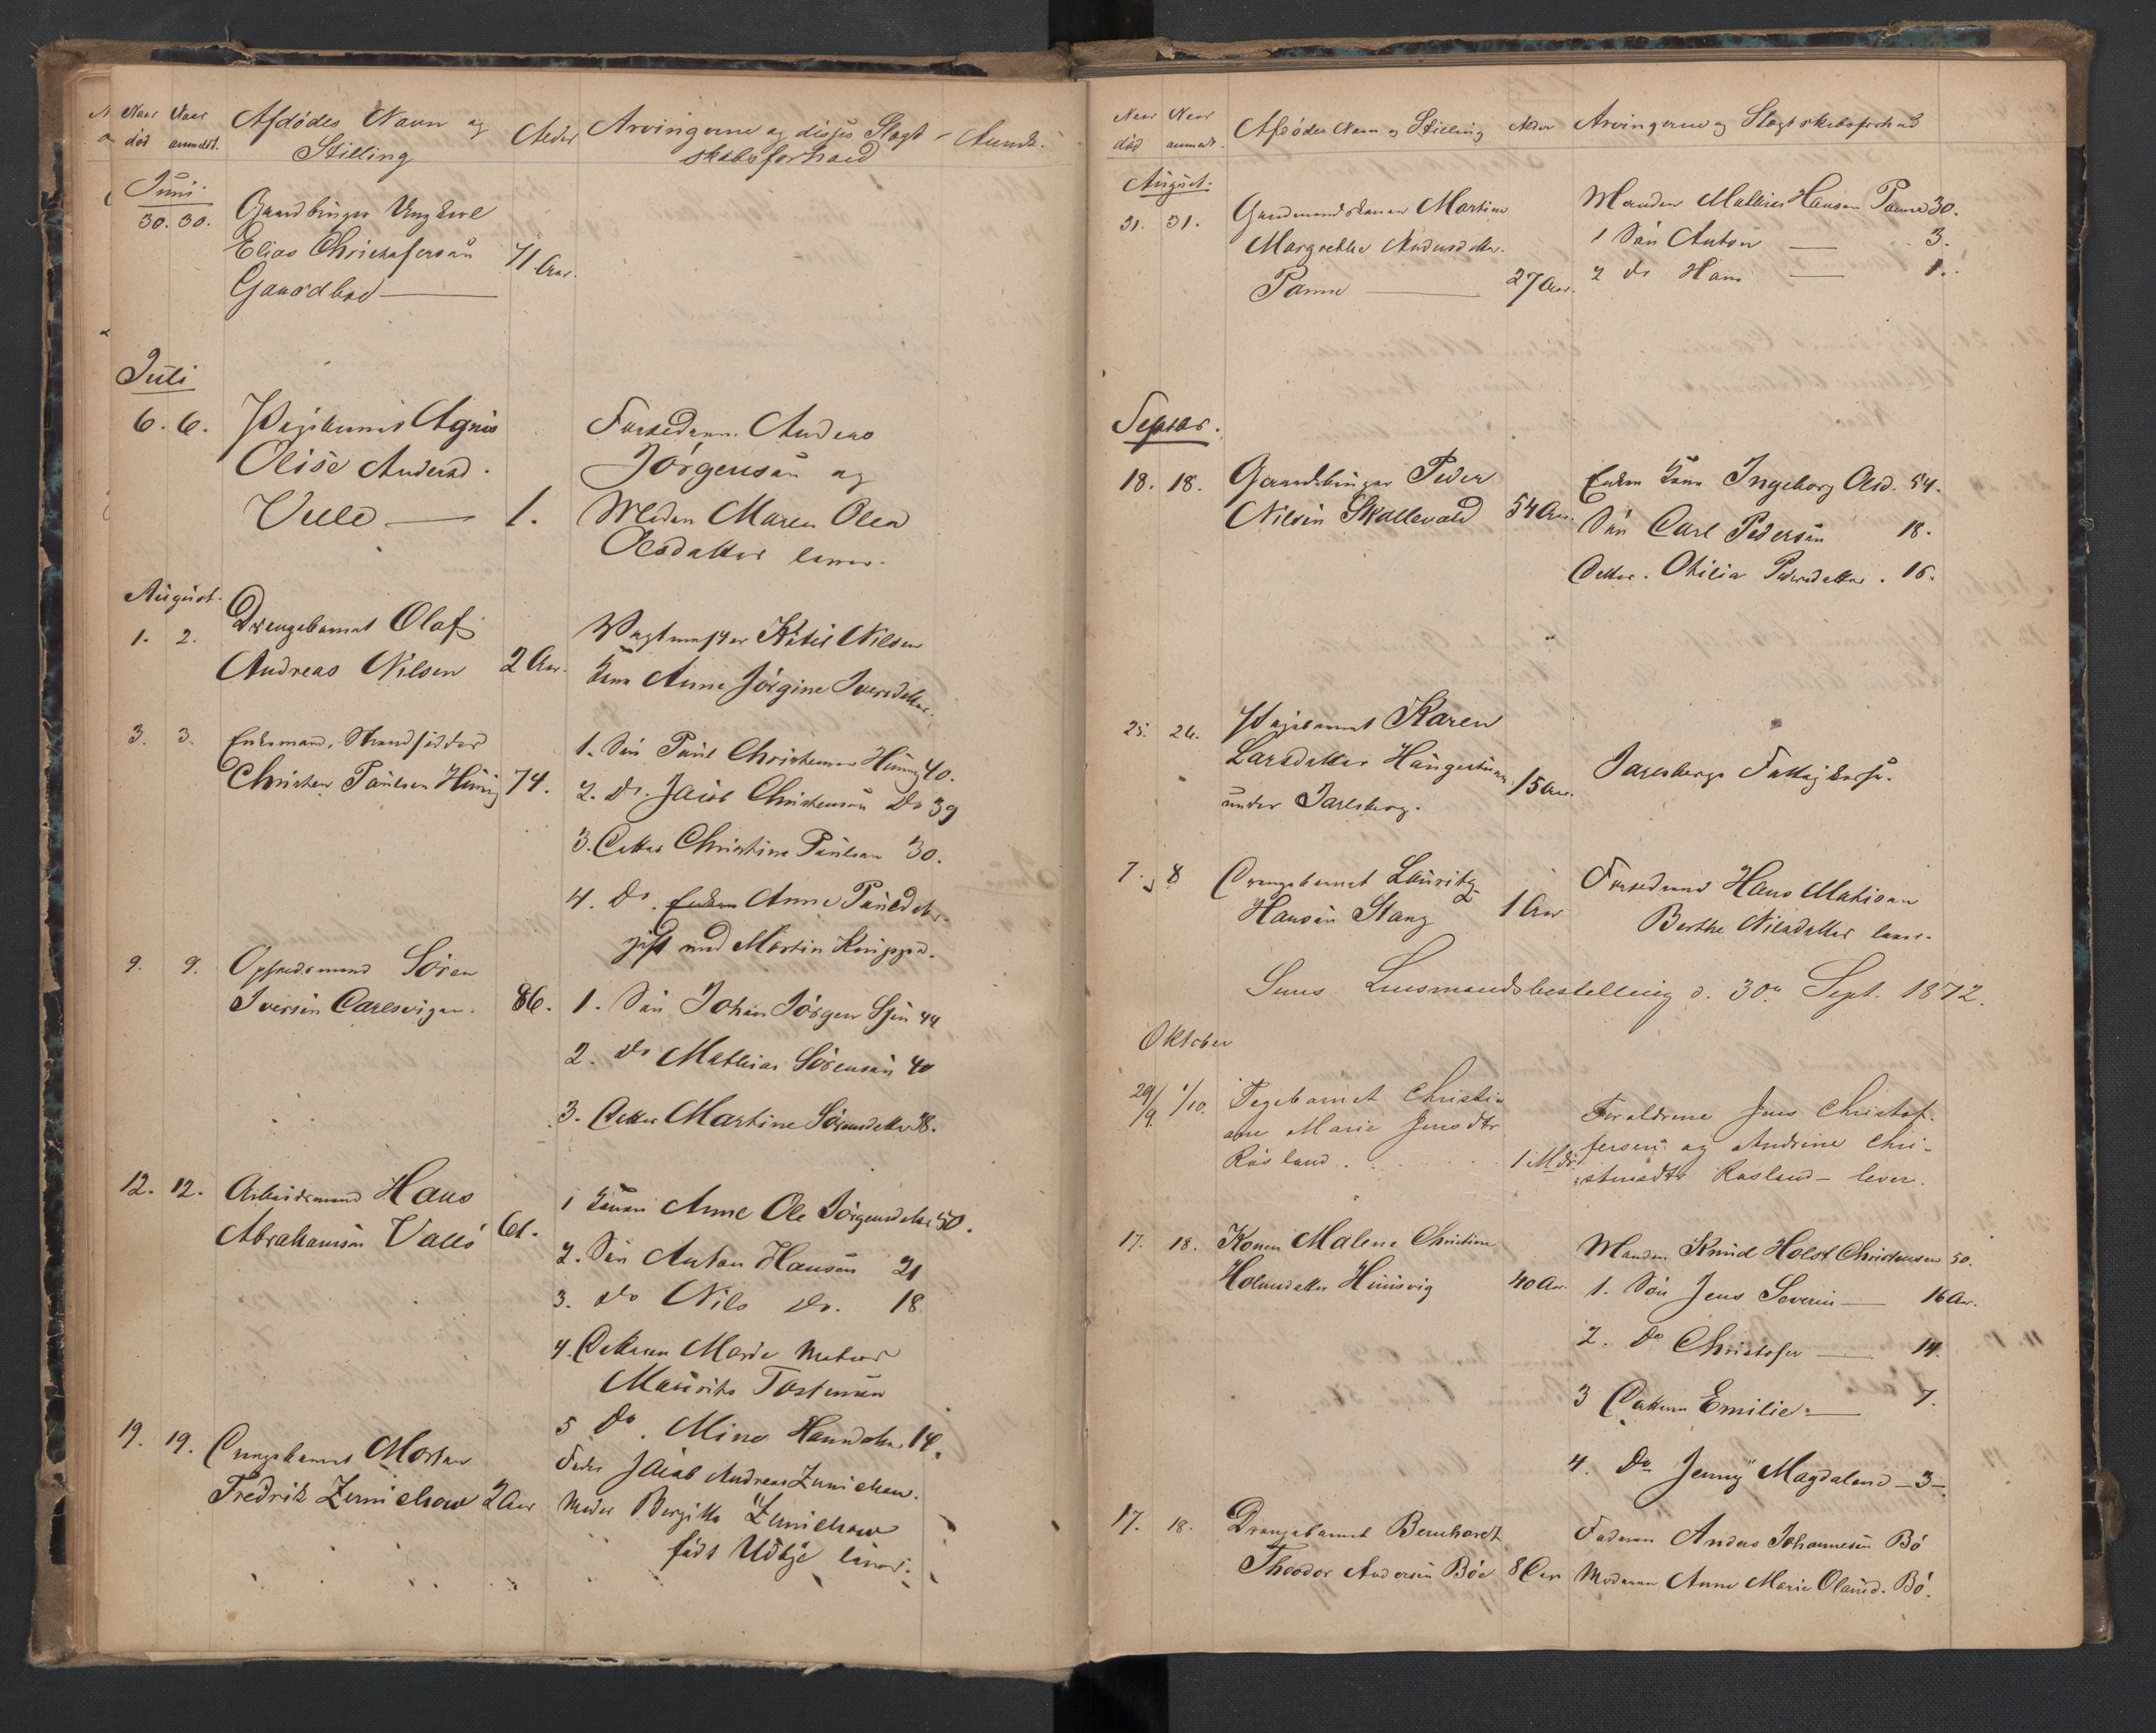 Naar Naar Afdødes Navn og Alder Arvingerne og disses Slægt- Anmk.
død anmeldt. Stilling skabsforhold
Juni
30. 30. Gaardbruger Ungkarl
Elias Christofersen 71 Aar.
Gaardbo
Juli
6. 6. Pigebarnet Agnis
Olise Andersd.
Velle 1.
Forældrene Anders
Jörgensen og
Moder Maren Olea
Olsdatter lever.
August.
1. 2. Drengebarnet Olaf
Andreas Nilsen 2 Aar.
Vagtmester Ketil Nilsen
Kone Anne Jörgine Iversdatter.
3. 3. Enkemand, Strandsidder
Christen Paulsen 74.
1. Sön Paul Christensen 40.
2. Do. Jacob Christensen Do 39
3. Datter Christine Paulsen 30.
4. Do. Anne Paulsdtr.
gift med Martin
9. 9. Opsidder Sören
Iversen Carlsvigen. 86.
1. Sön Johan Jörgen 44
2. Do Mathias Sörensen 40
3. Datter Martine Sörensdatter 38.
12. 12. Arbeidsmand Hans
Abrahamsen Vallö 61.
1 Konen Anne Ole Jörgensdatter 50.
2. Sön Anton Hansen 21
3. Do Nils Do. 18.
4. Datteren Marie
Maurits
5 Do. Mina Hansdtr. 14.
19. 19. Drengebarnet Morten
Fredrik Zernichow 2 Aar
Fader Jacob Andreas Zernichow.
Moder Bergitte Zernichow
född lever.
Naar Naar Afdødes Navn og Stilling Alder Arvingerne og Slægtskabsforhold
død anmeldt.
August.
31. 31. Gaardmandskonen Martine
Margrethe Andersdtr.
27 Aar.
Manden Mathias Hansen 30.
1 Sön Anton 3.
2 do Hans 1.
Septbr.
18. 18. Gaardbruger Peder
Nilsen Skallevold 54 Aar.
Enken Kone Ingeborg Olsd. 54.
Sön Carl Pedersen 18.
Datter. Othilia Pedersdatter. 16.
25. 26. Pigebarnet Karen
Larsdatter
under Jarlsberg. 15 Aar.
Jarlsbergs
7. 8 Drengebarnet Lauritz
Hansen Stang 1 Aar
Forældrene Hans Mathisen
Berthe Nilsdatter lever.
Sems Lensmandsbestilling d. 30te Sept. 1872.
Oktober
29/9. 1/10. Pigebarnet Christi-
ane Marie Jensdtr
Rosland. 1 Md.
Forældrene Jens Christof-
fersen og Andrine Chri-
stensdtr Rosland - lever.
17. 18. Konen Malene Christine
Holmsdatter Husvig 40 Aar.
Manden Knud Holst Christensen 50.
1. Sön Jens Severin 16 Aar.
2. Do Christofer 14.
3 Datteren Emilie 7.
4. Do Jenny Magdalene - 3 -
17. 18. Drengebarnet Bernhardt
Theodor Andersen Böe 8 Aar
Faderen Anders Johannesen Bö
Moderen Anne Marie Olausd. Bö.